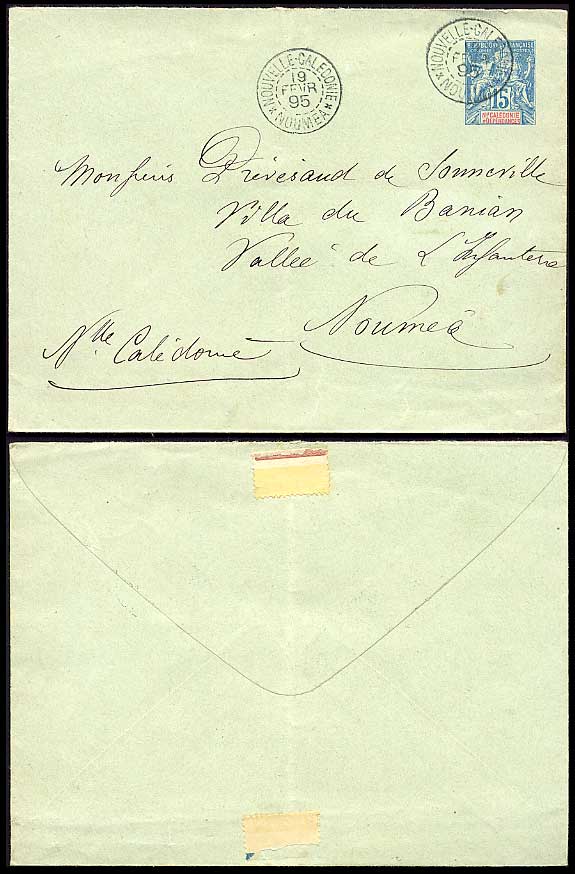 NOUVELLE-CALEDONIE
19
FEVR
95
NOUMEA
NOUVELLE-CALE
FEVR
95
NOUMEA
RÉPUBLIQUE FRANÇAISE
COLONIES POSTES
15
Nlle CALÉDONIE
et DÉPENDANCES
Monsieur de Sonneville
Villa du Banian
Vallée de L'Infanterie
Nouméa
Nlle Calédonie